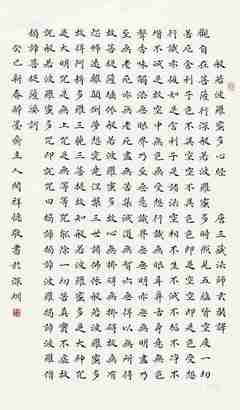 般若波羅蜜多心經 唐三藏法師玄奘譯
觀自在菩薩行深般若波羅蜜多時照見五蘊皆空度一切
苦厄舍利子色不異空空不異色色即是空空即是色受想
行識亦復如是舍利子是諸法空相不生不滅不垢不淨不
增不減是故空中無色無受想行識無眼耳鼻舌身意無色
聲香味觸法無眼界乃至無意識界無無明亦無無明盡乃
至無老死亦無老死盡無苦集滅道無智亦無得以無所得
故菩提薩埵依般若波羅蜜多故心無罣礙無罣礙故無有
恐怖遠離顛倒夢想究竟涅槃三世諸佛依般若波羅蜜多
故得阿耨多羅三藐三菩提故知般若波羅蜜多是大神咒
是大明咒是無上咒是無等等咒能除一切苦真實不虛故
說般若波羅蜜多咒即說咒曰揭諦揭諦波羅揭諦波羅僧
揭諦菩提薩婆訶
癸巳新春醉墨齋主人閆祥德敬書於深圳